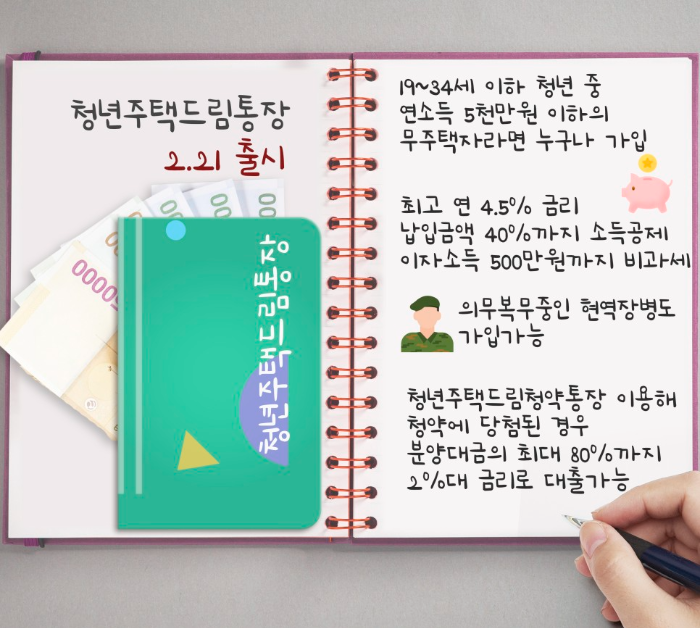 청년주택드림통장
2.21 출시
50000
청년주택드림통장
19~34세 이하 청년 중
연소득 5천만원 이하의
무주택자라면 누구나 가입
최고 연 4.5% 금리
납입금액 40%까지 소득공제
이자소득 500만원까지 비과세
의무복무중인 현역장병도
가입가능
청년주택드림청약통장 이용해
청약에 당첨된 경우
분양대금의 최대 80%까지
2%대 금리로 대출가능